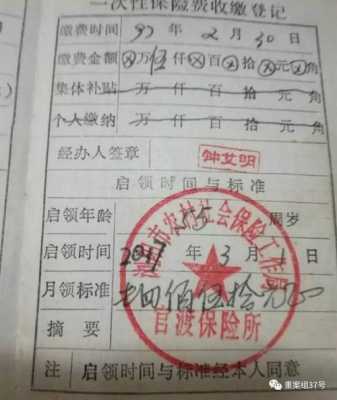 一次性保险费收缴登记
缴费时间 97 年 2 月 30 日
缴费金额 ⊗万伍仟⊗百⊗拾⊗元⊗角
集体补贴 万 仟 百 拾 元 角
个人缴纳 万 仟 百 拾 元 角
经办人签章 钟艾明
启领时间与标准
启领年龄 55 周岁
启领时间 2017 年 3 月 1 日
月领标准 佰伍拾元
摘要
注 启领时间与标准经本人同意
市农村社会保险工作
官渡保险所
重案组37号